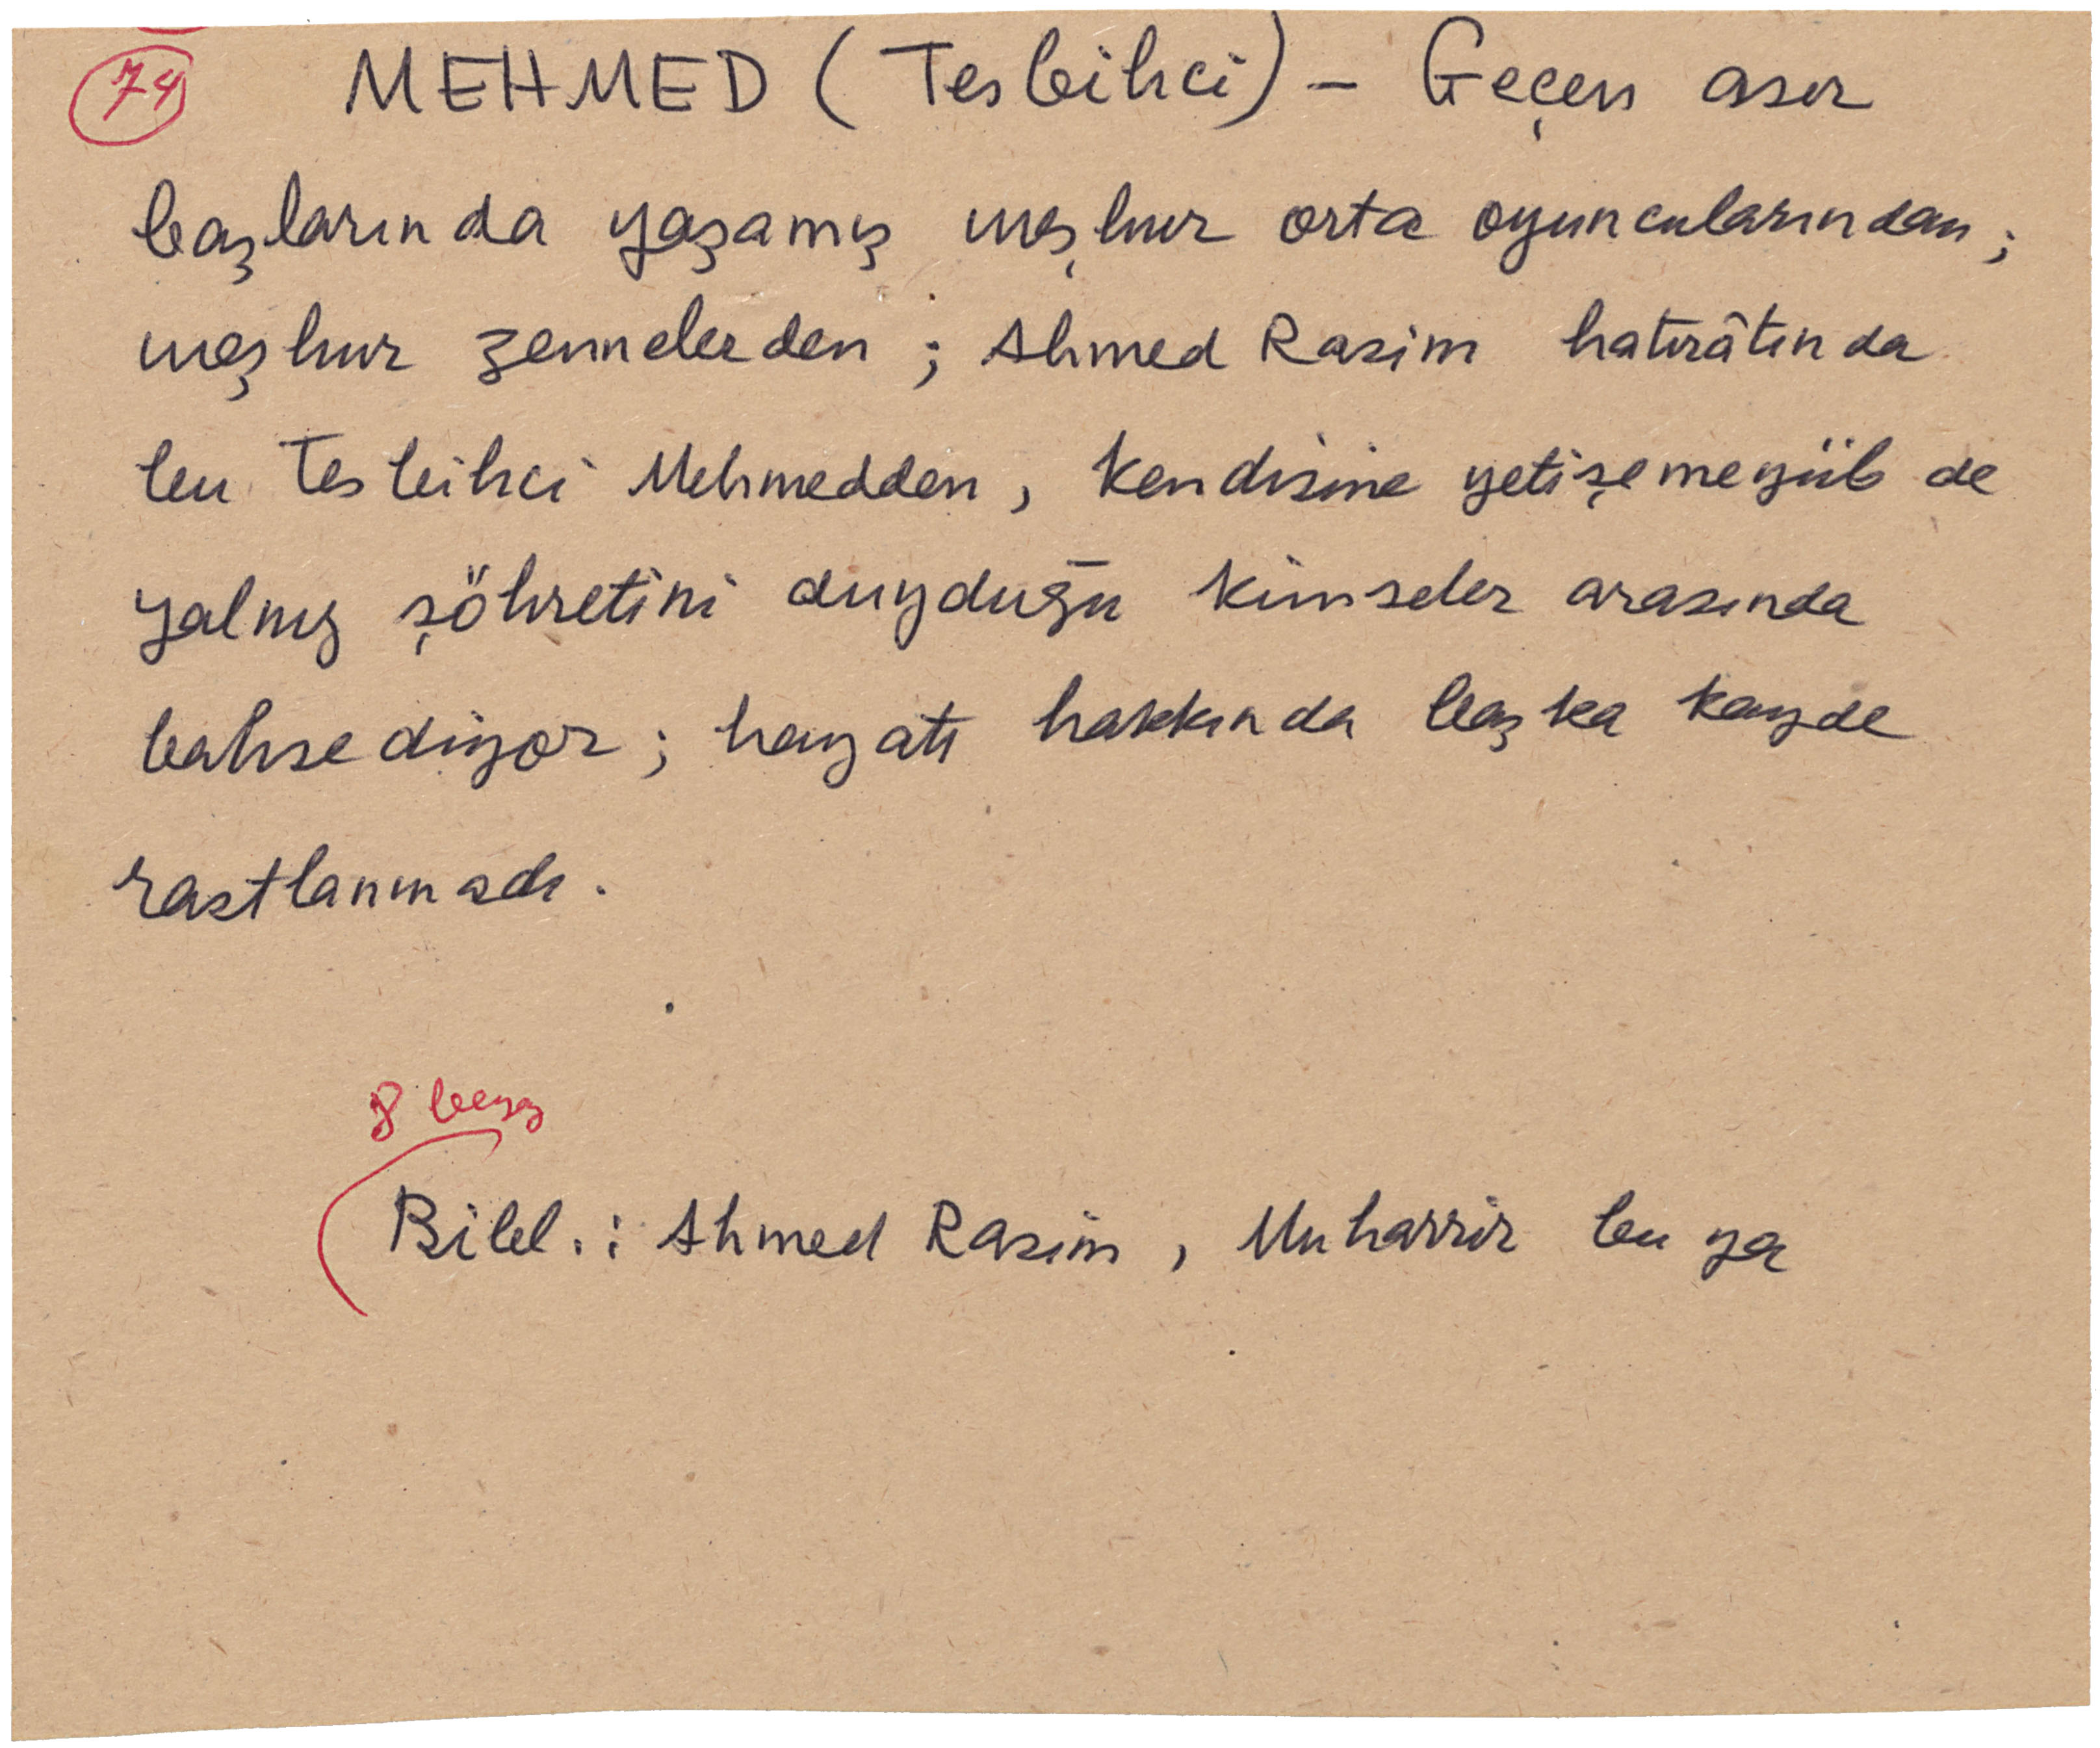 74 MEHMED (Tesbihci) – Geçen asır
başlarında yaşamış meşhur orta oyuncularından;
meşhur zennelerden; Ahmed Rasim hatırâtında
bu Tesbihci Mehmedden, kendisine yetişemeyüb de
yalnız şöhretini duyduğu kimseler arasında
bahsediyor; hayatı hakkında başka kayde
rastlanmadı.
8 beyaz
Bibl.: Ahmed Rasim, Muharrir bu ya